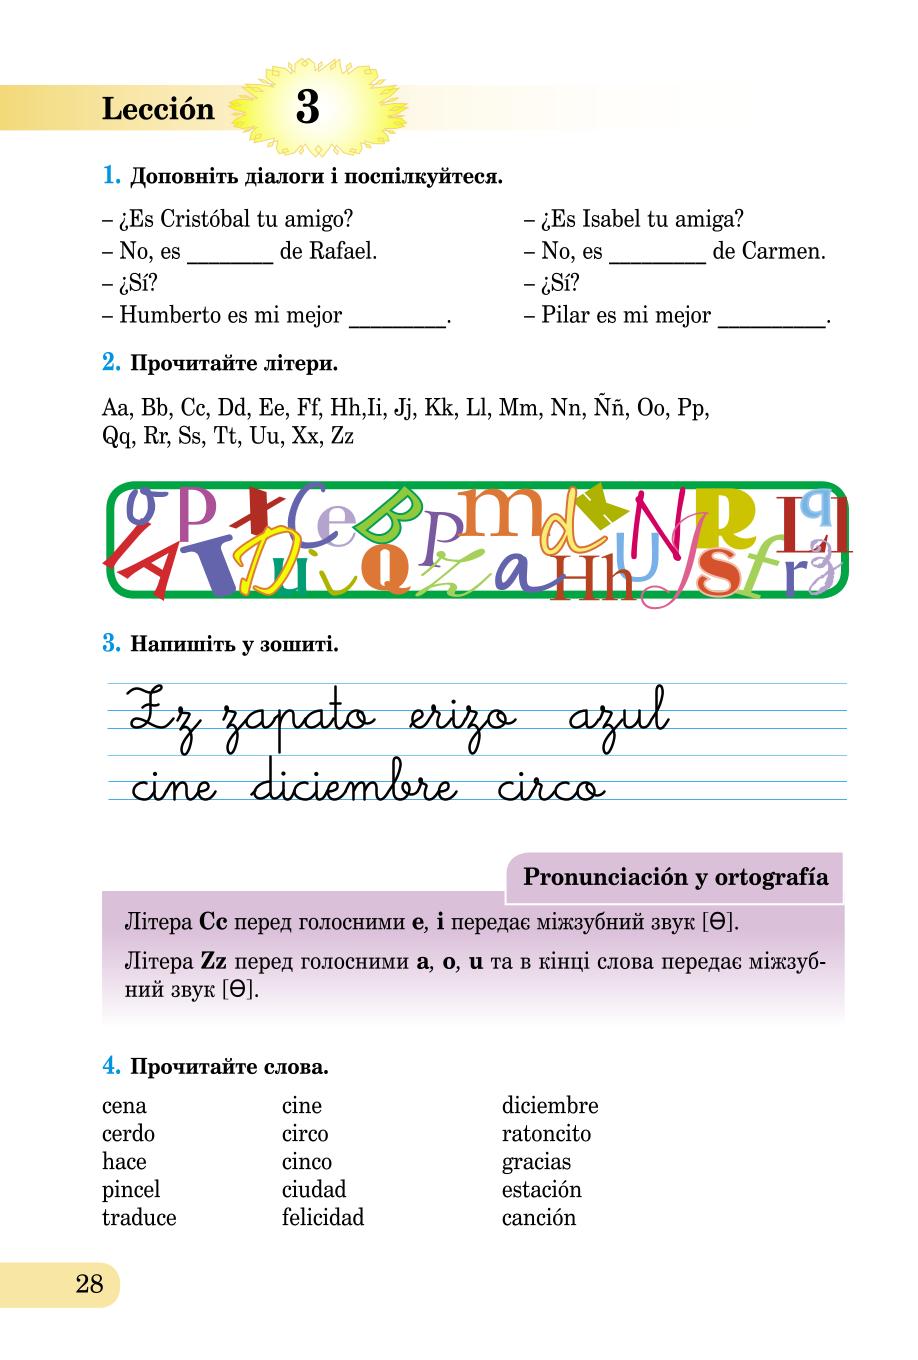 Lección 3
1. Доповніть діалоги і поспілкуйтеся.
– ¿Es Cristóbal tu amigo?
– No, es ________ de Rafael.
– ¿Sí?
– Humberto es mi mejor _________.
– ¿Es Isabel tu amiga?
– No, es _________ de Carmen.
– ¿Sí?
– Pilar es mi mejor __________.
2. Прочитайте літери.
Aa, Bb, Cc, Dd, Ee, Ff, Hh,Ii, Jj, Kk, Ll, Mm, Nn, Ññ, Oo, Pp,
Qq, Rr, Ss, Tt, Uu, Xx, Zz
3. Напишіть у зошиті.
Zz zapato erizo azul
cine diciembre circo
Pronunciación y ortografía
Літера Cc перед голосними e, i передає міжзубний звук [Ө].
Літера Zz перед голосними a, o, u та в кінці слова передає міжзуб-
ний звук [Ө].
4. Прочитайте слова.
cena
cerdo
hace
pincel
traduce
cine
circo
cinco
ciudad
felicidad
diciembre
ratoncito
gracias
estación
canción
28